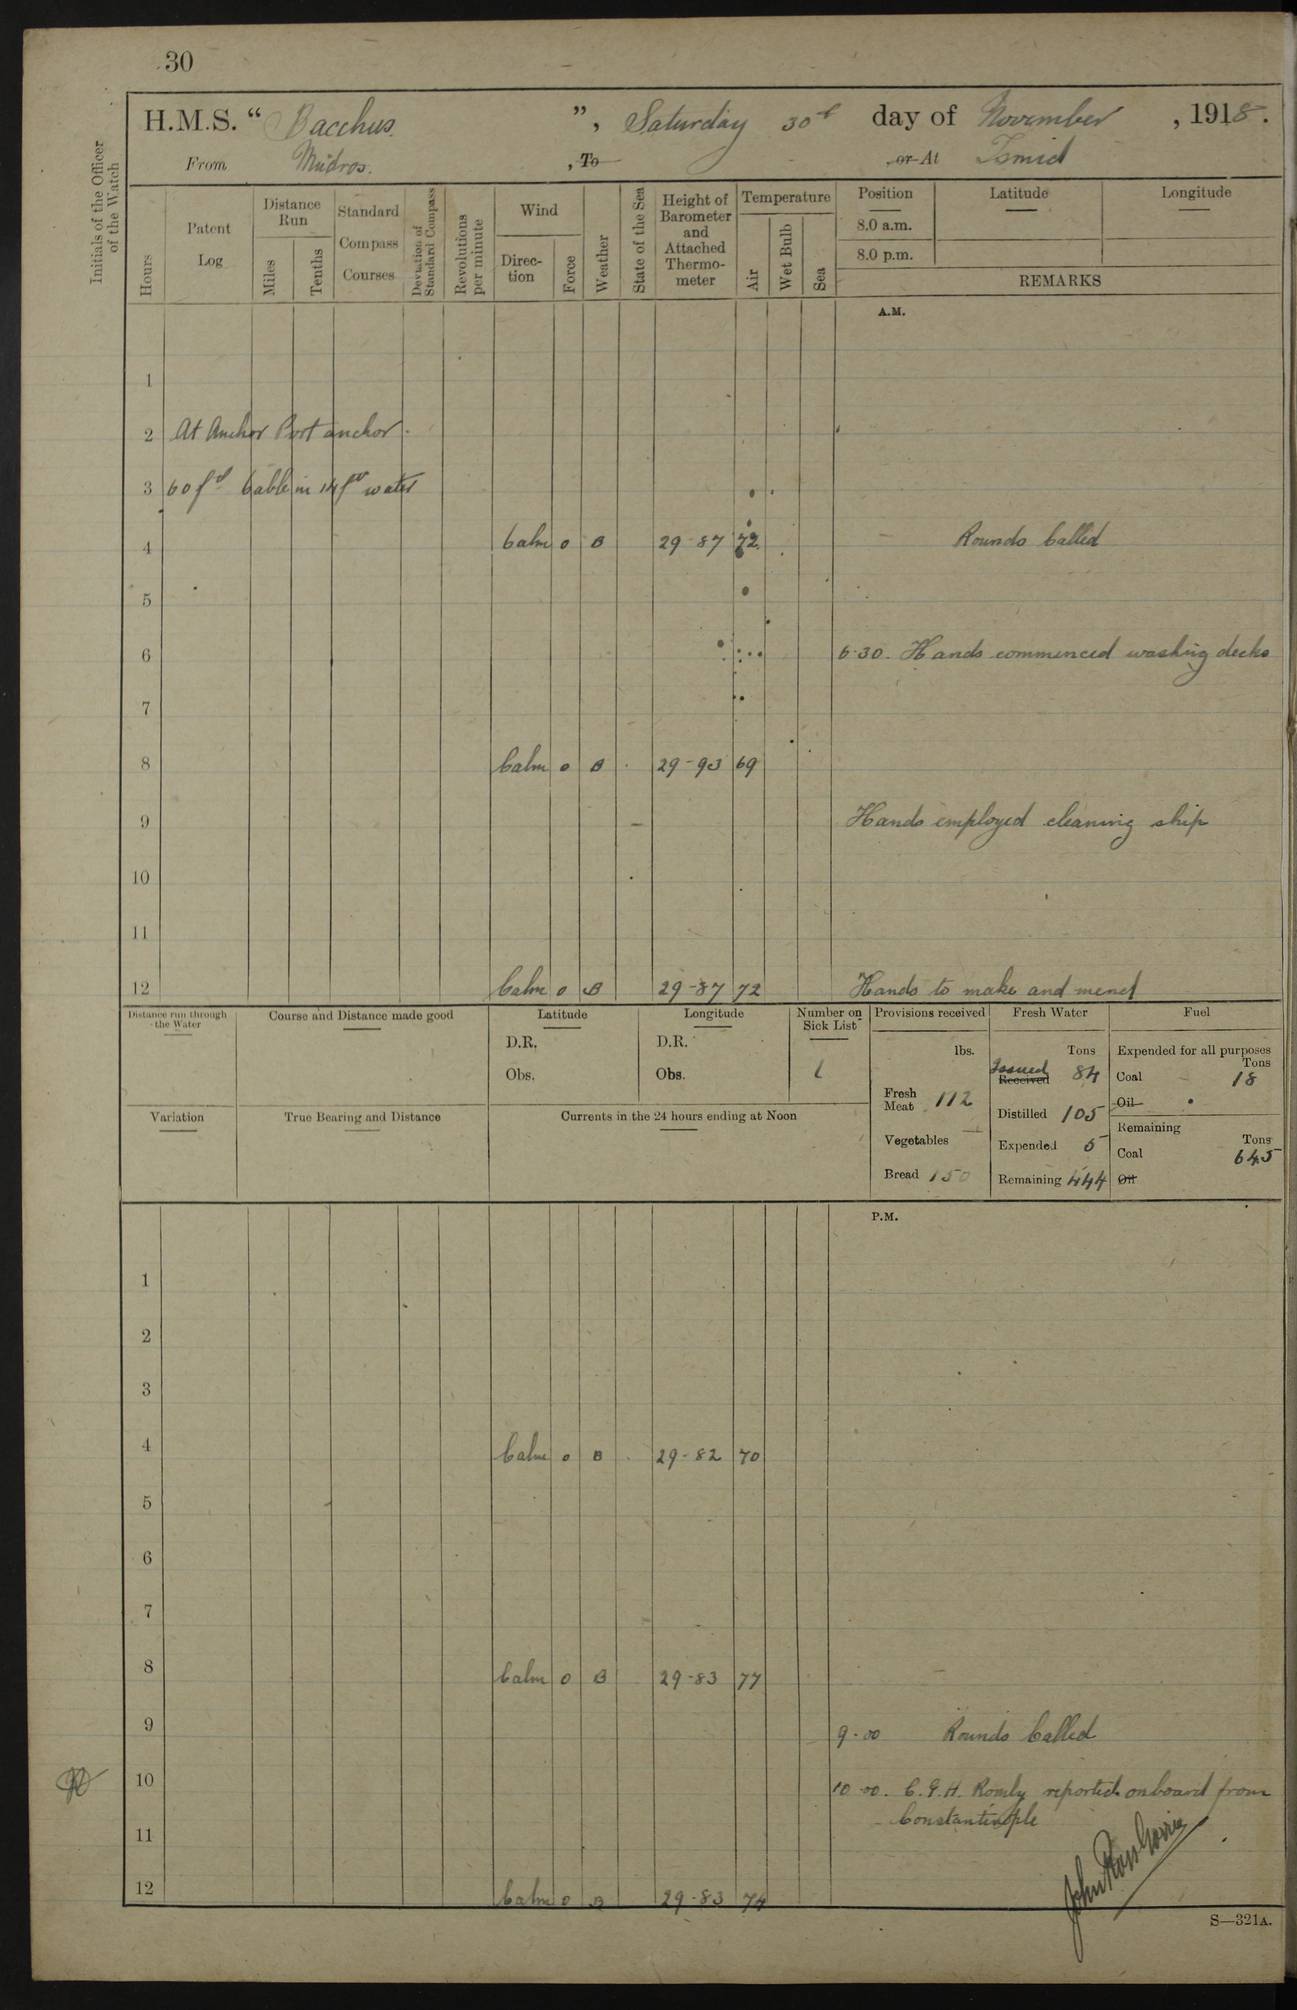 30
H.M.S. “ Bacchus ”, Saturday 30th day of November, 1918.
From Mudros. , To or At Ismid
Initials of the Officer of the Watch
Hours
Patent Log
Distance Run
Miles
Tenths
Standard Compass Courses
Deviation of Standard Compass
Revolutions per minute
Wind
Direction
Force
Weather
State of the Sea
Height of Barometer and Attached Thermometer
Temperature
Air
Wet Bulb
Sea
Position Latitude Longitude
8.0 a.m.
8.0 p.m.
REMARKS
A.M.
1
2 At Anchor Port anchor.
3 60 fms Cable in 14 fms water
4 Calm 0 B 29-87 72 Rounds Called
5
6 6.30. Hands commenced washing decks
7
8 Calm 0 B 29-93 69
9 Hands employed cleaning ship
10
11
12 Calm 0 B 29-87 72 Hands to make and mend
Distance run through the Water
Course and Distance made good
Latitude
D.R.
Obs.
Longitude
D.R.
Obs.
Number on Sick List
1
Provisions received
lbs.
Fresh Meat 112
Vegetables —
Bread 150
Fresh Water
Tons
Issued Received 84
Distilled 105
Expended 5
Remaining 444
Fuel
Expended for all purposes
Tons
Coal 18
Oil
Remaining
Tons
Coal 645
Oil
Variation
True Bearing and Distance
Currents in the 24 hours ending at Noon
P.M.
1
2
3
4 Calm 0 B 29-82 70
5
6
7
8 Calm 0 B 29-83 77
9 9-00 Rounds Called
10 10-00. C.G.H. reported onboard from
Constantinople
11
12 Calm 0 B 29-83 74
John
S—321A.